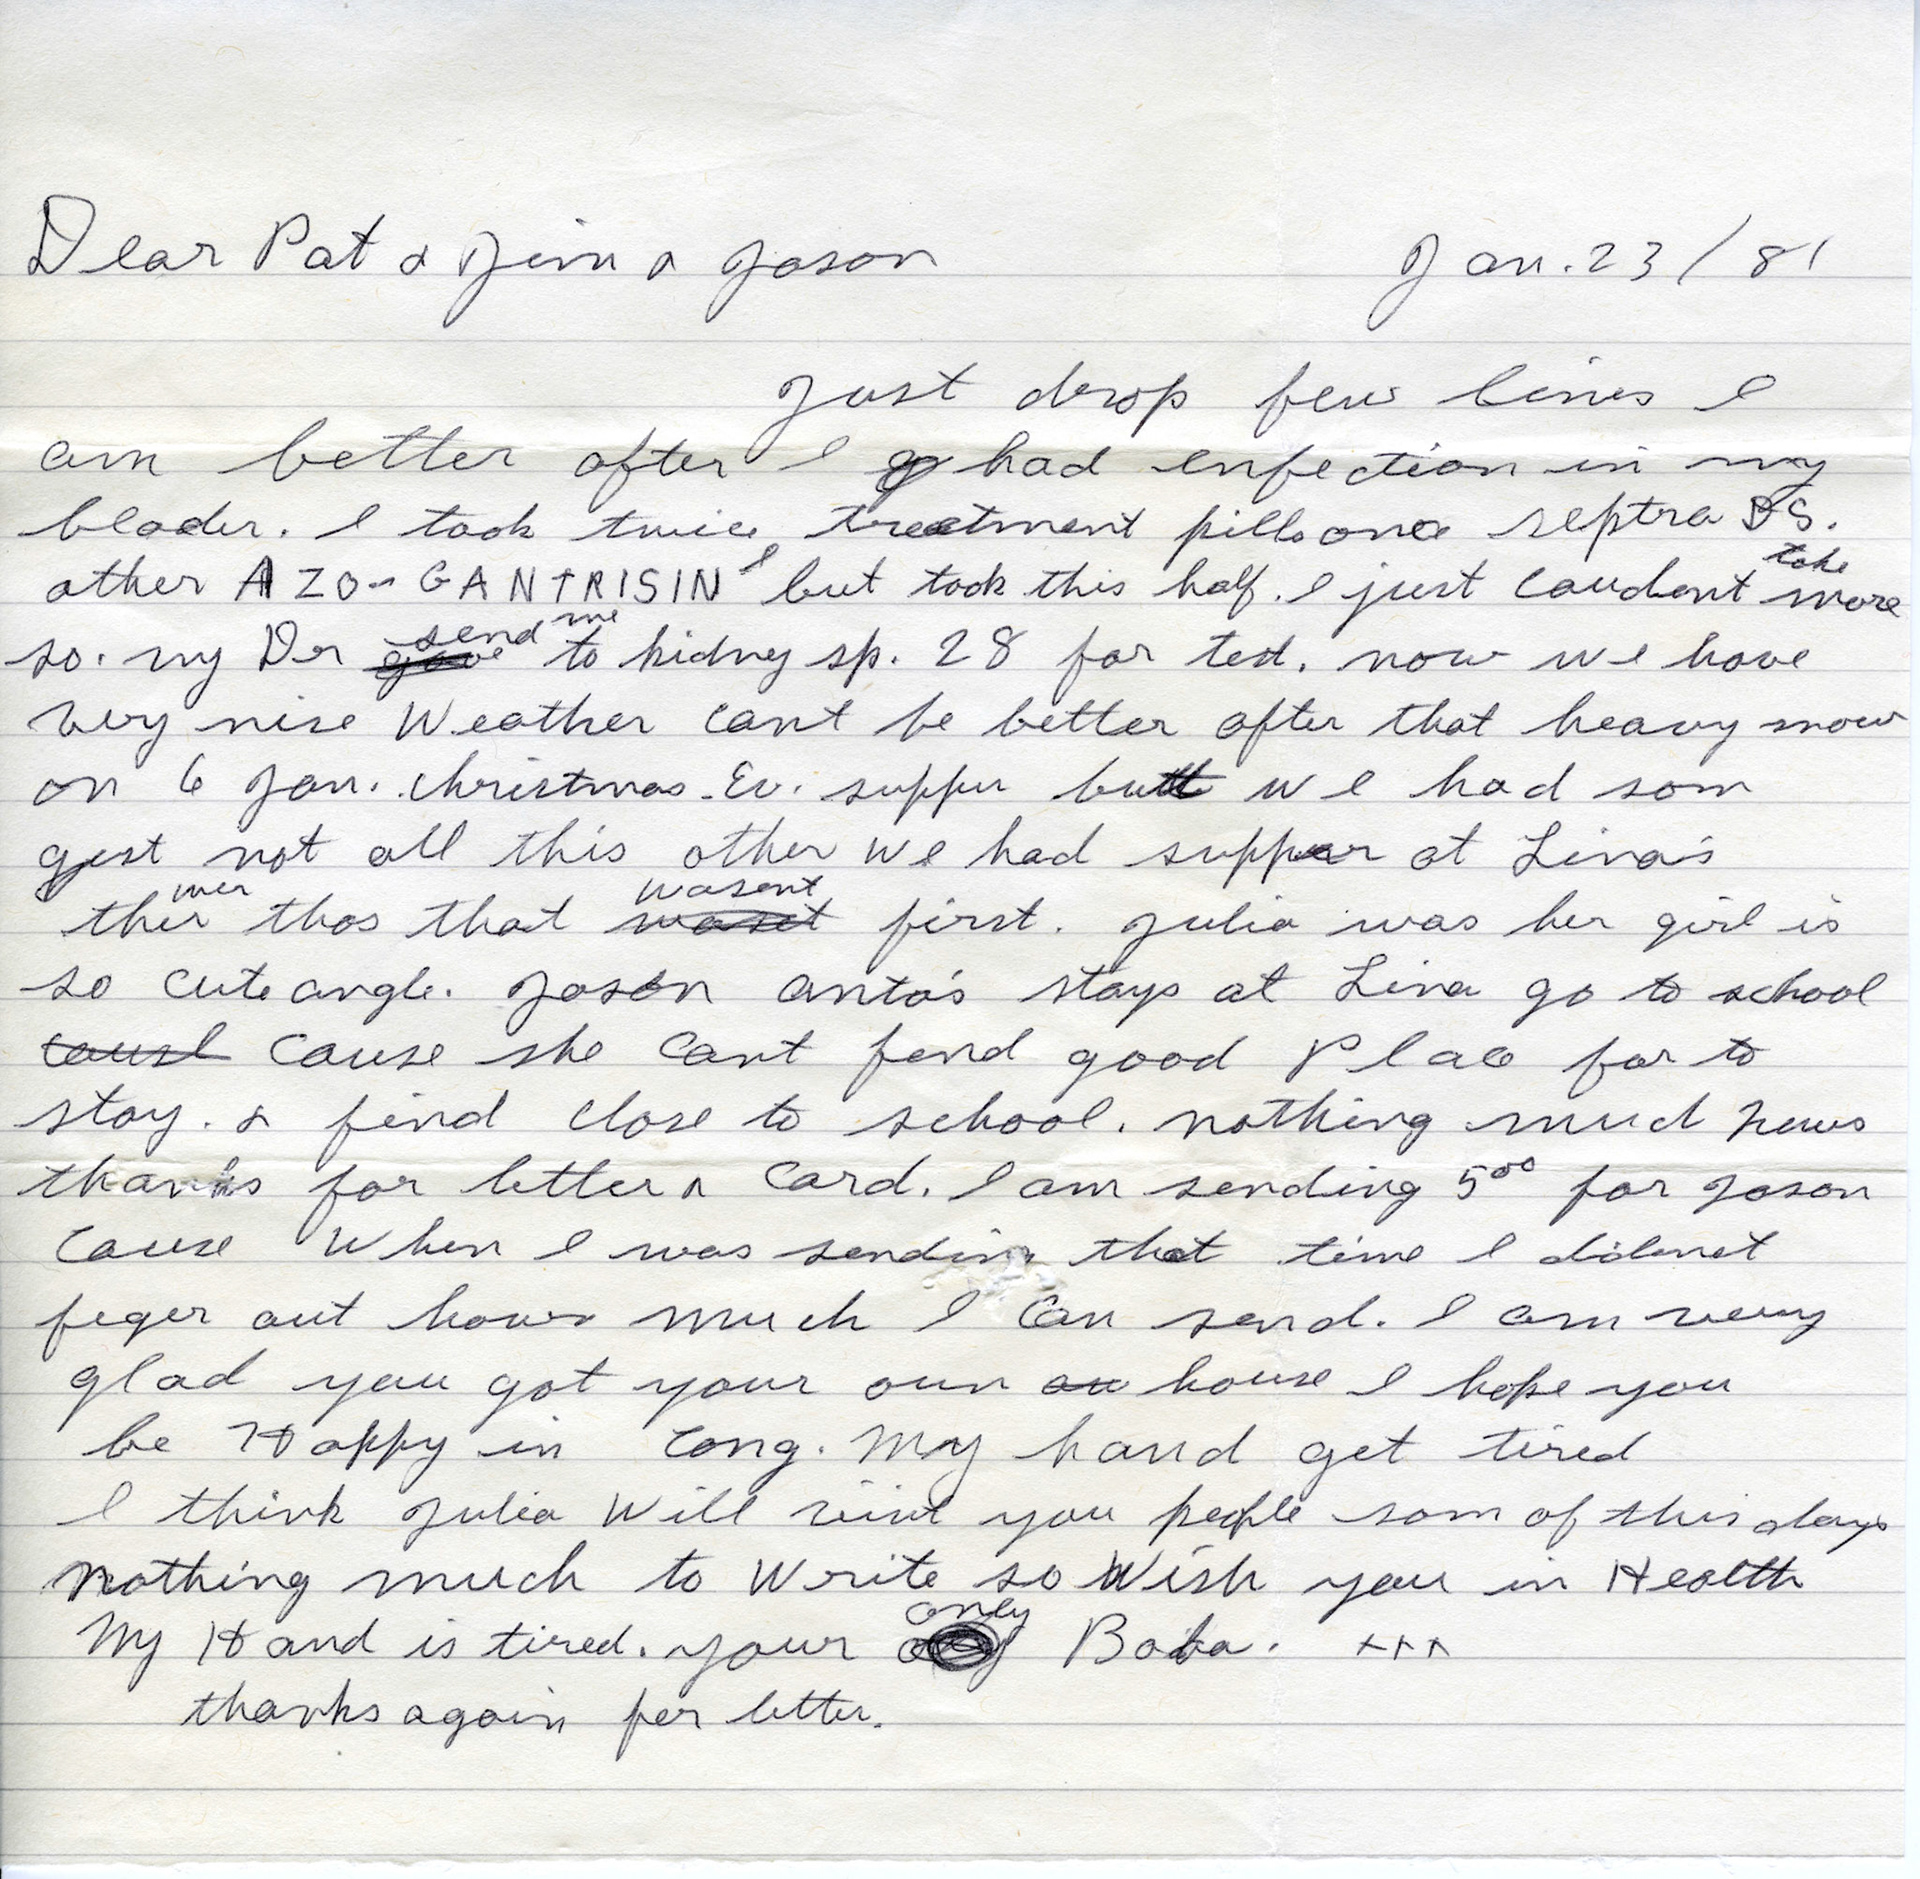 Dear Pat & Jim & Jason Jan. 23/81
Just drop few lines I
am better after I had enfection in my
blader. I took twice treetment pills one septra DS.
other AZO-GANTRISIN I but took this half. I just coudent take more
so. my Dr send me to kidney sp. 28 for test. now we have
very nise Weather cant be better after that heavy snow
on 6 Jan. Christmas Ev. supper but we had som
gest not all this other we had supper at Lina's
ther wer thos that wasent first. Julia was her girl is
so cute angle. Jason anta's stays at Lina go to school
cause Cause she cant fend good Place for to
stay. & find close to school. nothing much news
thanks for letter & Card. I am sending 5⁰⁰ for Jason
Cause When I was sendin that time I didenet
feger out how much I can send. I am veery
glad you got your oun house I hope you
be Happy in Long. My hand get tired
I think Julia Will visit you people som of this days
Nothing much to Write so Wish you in Health
My Hand is tired. your only Baba. xxx
thanks again fer letter.